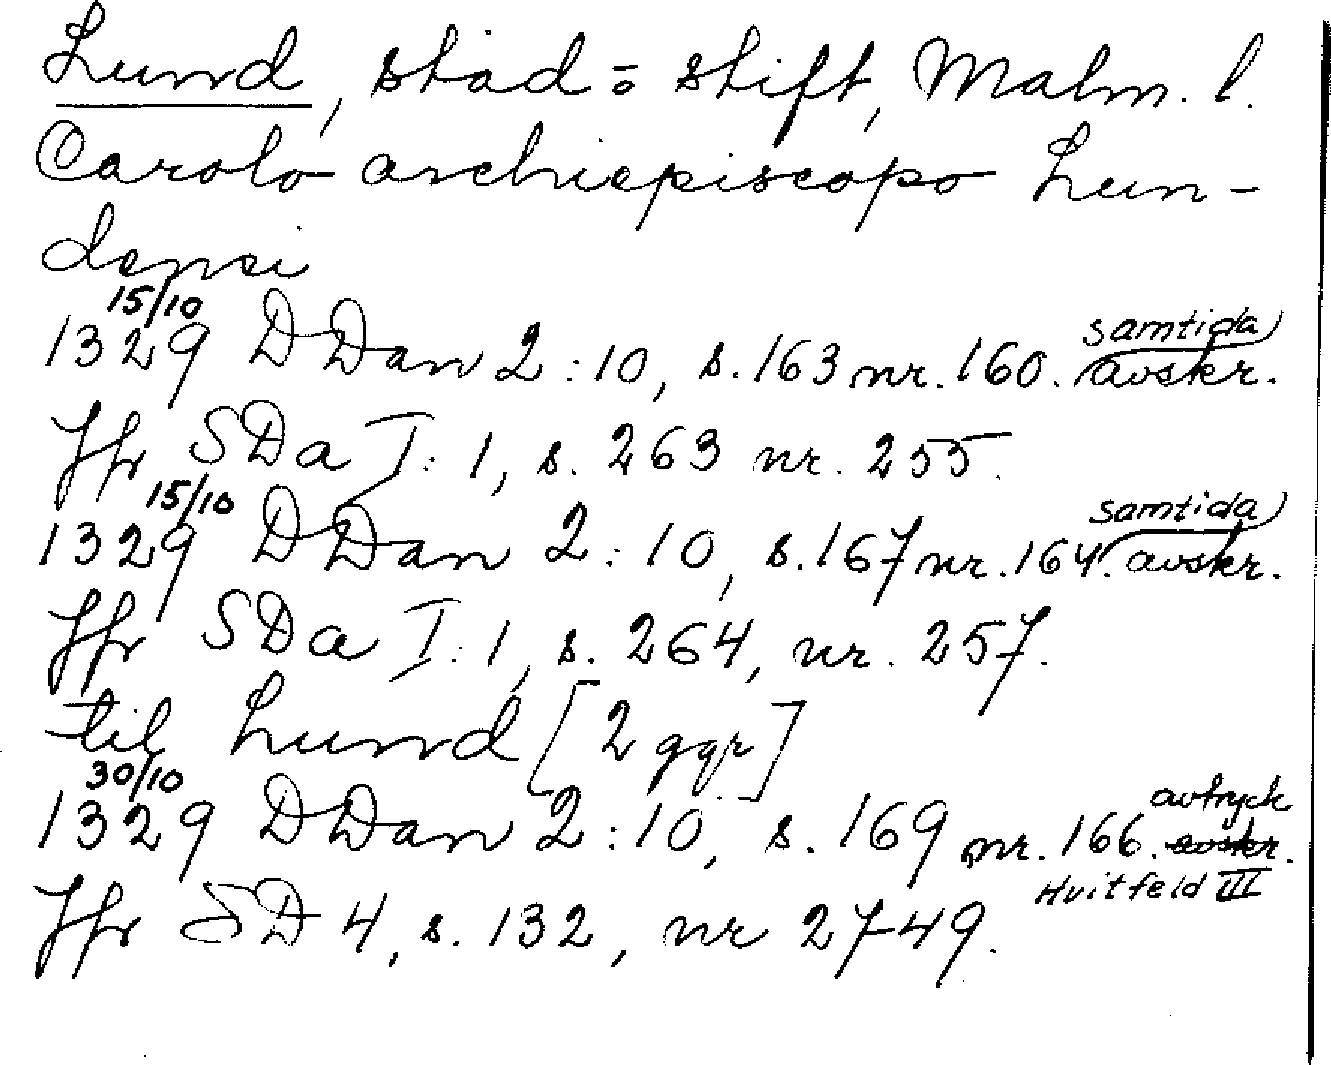 Lund, stad = stift, Malm. l.
Carolo archiepiscopo Lun-
densi
15/10
samtida
1329 DDan 2:10, s. 163 nr. 160. avskr.
Jfr SDa I:1, s. 263 nr. 255.
15/10
samtida
1329 DDan 2:10, s. 167 nr. 164. avskr.
Jfr SDa I:1, s. 264, nr. 257.
til Lund [2 ggr]
30/10
avtryck
1329 DDan 2:10, s. 169 nr. 166. avskr.
Hvitfeld III
Jfr SD 4, s. 132, nr 2749.